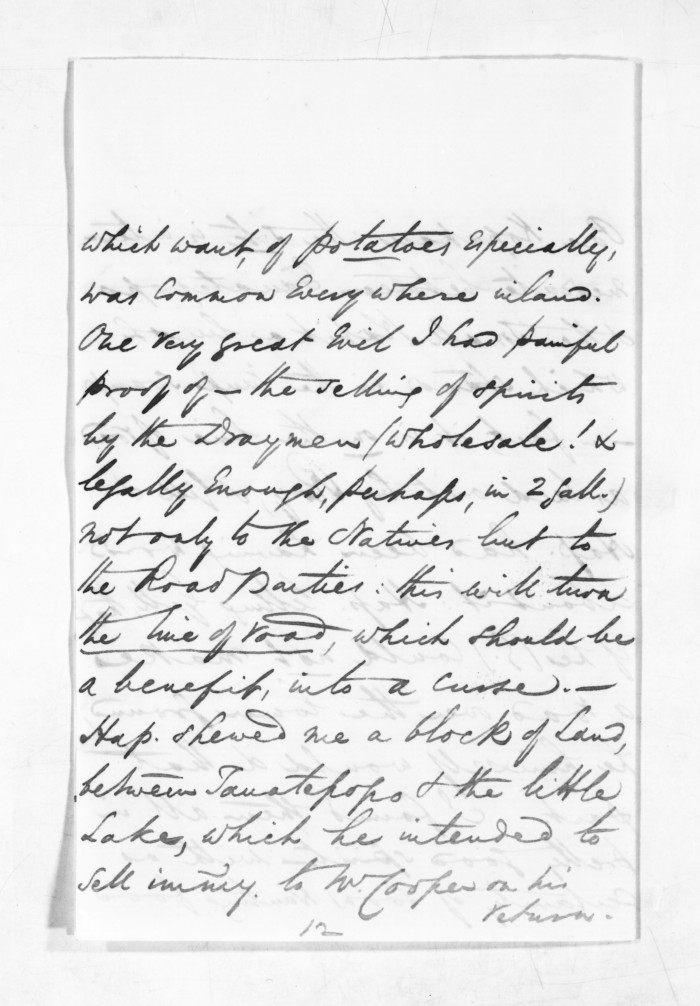 which want, of potatoes Especially,
was Common Everywhere inland.
One very great Evil I had painful
proof of — the selling of spirits
by the Draymen (wholesale! &
legally Enough, perhaps, in 2 gall.)
not only to the Natives but to
the Road Parties: this will turn
the line of road, which should be
a benefit, into a curse. —
Hap. shewed me a block of Land,
between Tauatepopo & the little
Lake, which he intended to
sell immy. to Mr. Cooper on his
return.
12